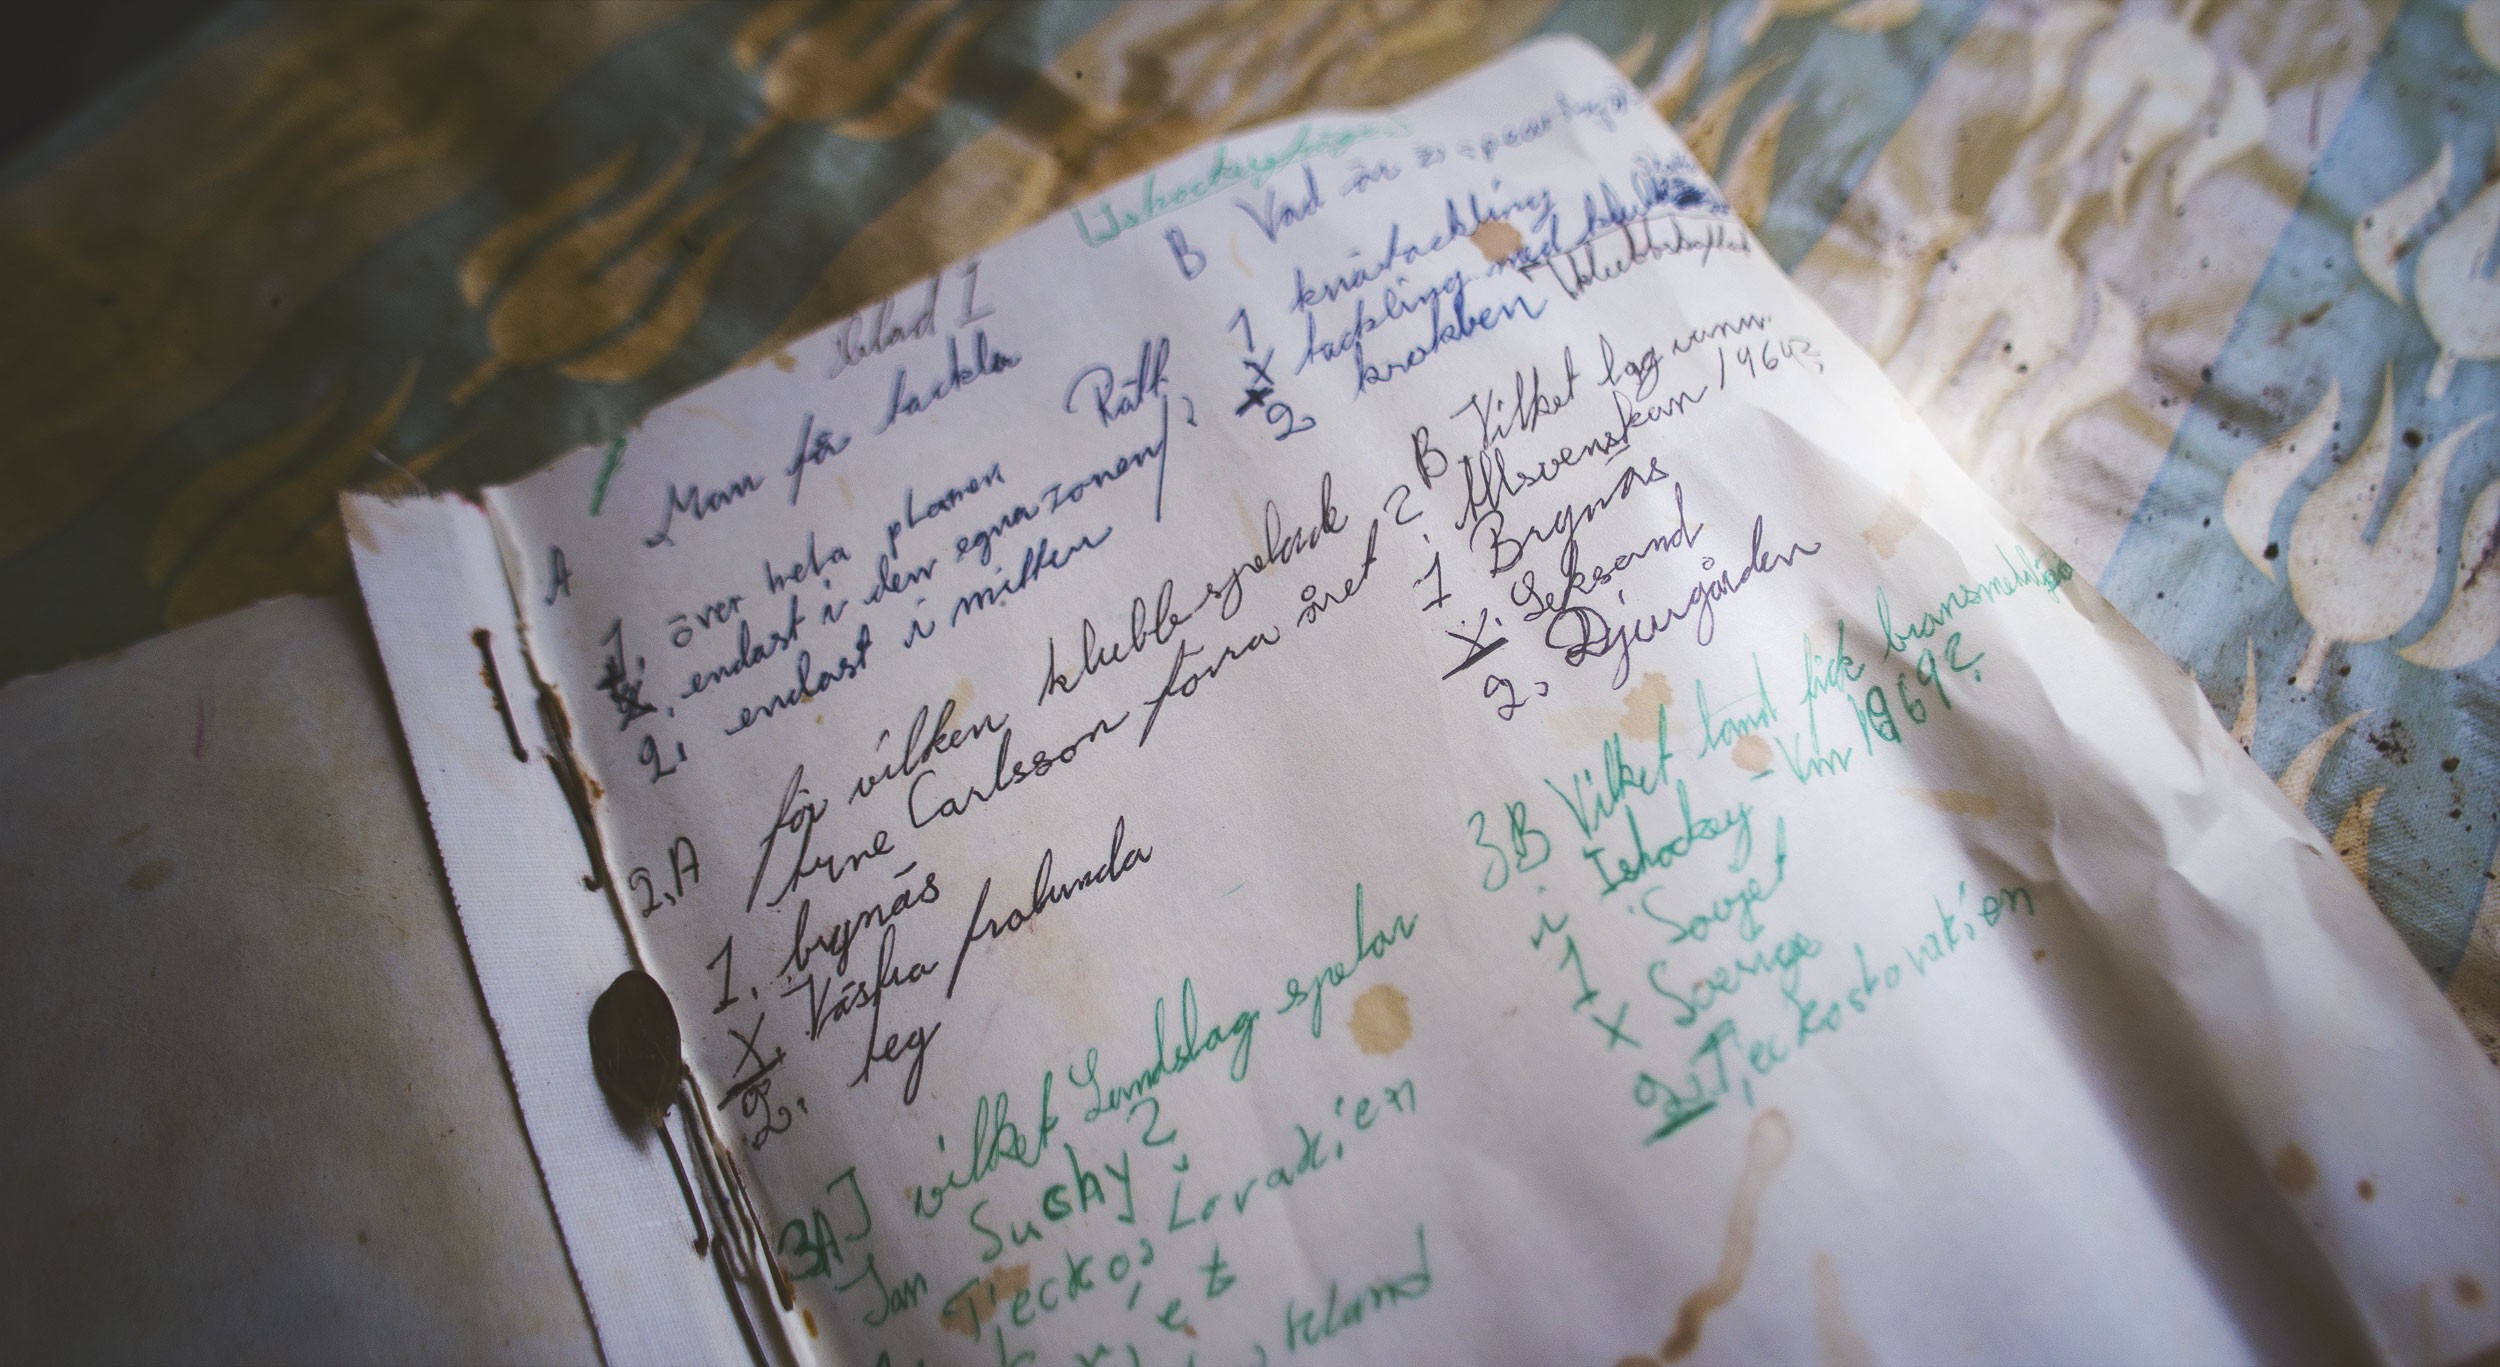 Ishockeyfrågor
blad 1
A Man får tackla
Rätt
1. över hela planen
X. endast i den egna zonen/?
2. endast i mitten
B Vad är
1 knätackling
X tackling med klubb
2 krokben
2.A för vilken klubb spelade
Arne Carlsson förra året?
1. brynäs
X. Västra frölunda
2. leg
B Vilket lag vann
Allsvenskan 1964?
1 Brynäs
X. Leksand
2. Djurgården
3A] vilket Landslag spelar
Jan Suchy?
Tjeckoslovakien
3B Vilket land fick bronsmedaljen
i Ishockey-Vm 1969?
1 Sovjet
X Sverige
2. Tjeckoslovakien